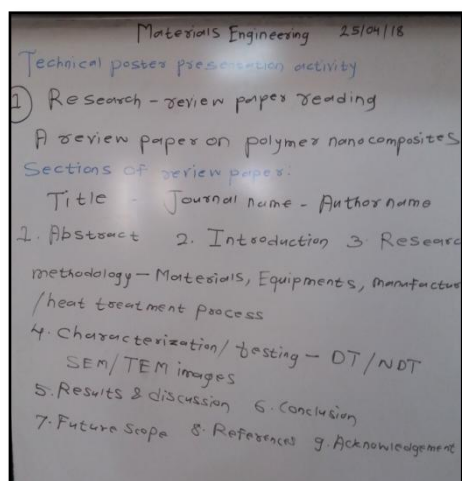 Materials Engineering 25/04/18
Technical poster presentation activity
1 Research - review paper reading
A review paper on polymer nanocomposites
Sections of review paper:
Title - Journal name - Author name
1. Abstract 2. Introduction 3. Researc
methodology - Materials, Equipments, manufactur
/heat treatment process
4. Characterization/testing - DT/NDT
SEM/TEM images
5. Results & discussion 6. Conclusion
7. Future Scope 8. References 9. Acknowledgement